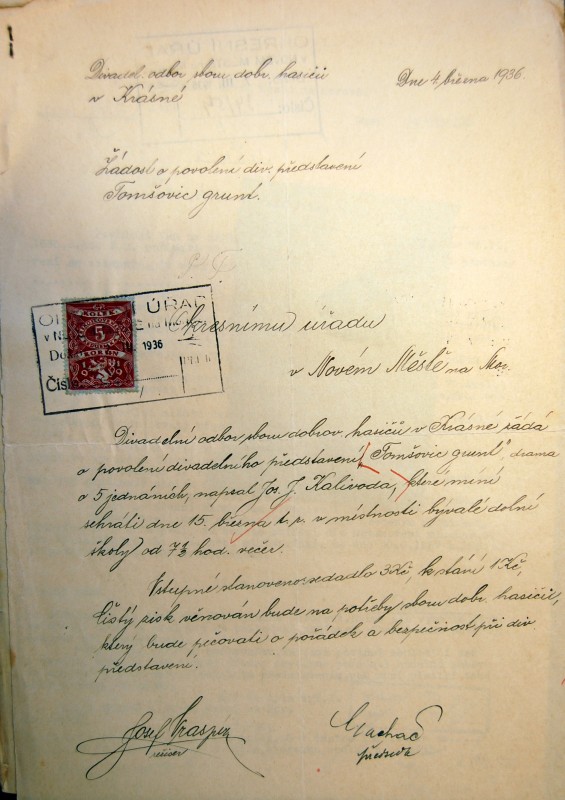 Divadel. odbor sboru dobr. hasičů
v Krásné
Dne 4. března 1936
Žádost o povolení div. představení
Tomšovic grunt.
P. T.
Okresnímu úřadu
v Novém Městě na Mor.
ÚŘAD
1936
KOLEK
5
KORUN
Divadelní odbor sboru dobrov. hasičů v Krásné žádá
o povolení divadelního představení „Tomšovic grunt", drama
o 5 jednáních, napsal Jos. J. Kalivoda, které míní
sehráti dne 15. března t. r. v místnosti bývalé dolní
školy od 7½ hod. večer.
Vstupné stanoveno: sedadlo 3 Kč, k stání 1 Kč,
čistý zisk věnován bude na potřeby sboru dobr. hasičů,
který bude pečovati o pořádek a bezpečnost při div.
představení.
Josef
režisér
předseda